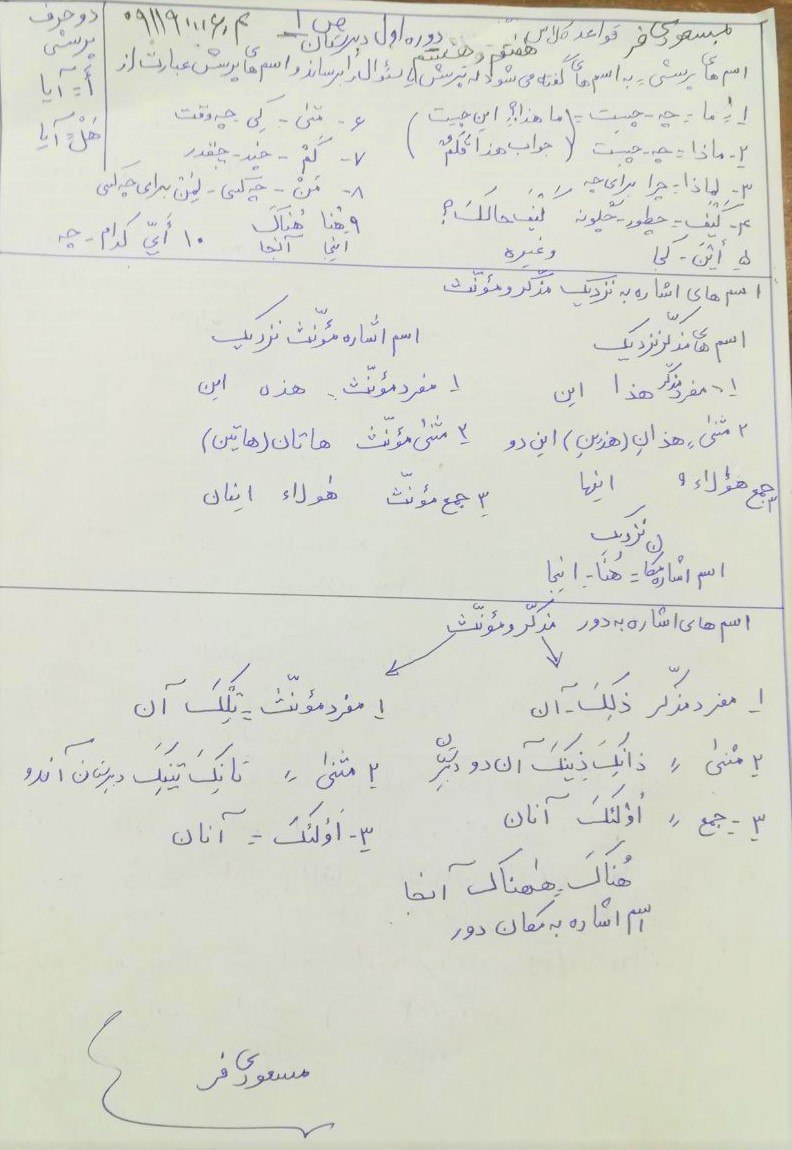 مسعودی فر قواعد کلاس هفتم و هشتم دوره اول دبیرستان ص ۱
اسم های پرسشی = به اسم های گفته می شود که پرسش یا سئوال را برساند و اسم های پرسش عبارت از
۱- ما = چه - چیست = ما هذا؟ این چیست
۲- ماذا - چه - چیست (جواب هذا قَلَمٌ)
۳- لماذا - چرا برای چه
۴- کَیْفَ - چطور - چگونه کَیْفَ حالُکَ؟
۵- أَیْنَ - کجا وغیره
۶- مَتیٰ - کِی - چه وقت
۷- کَمْ - چند - چقدر
۸- مَنْ - چه کسی - لِمَنْ برای چه کسی
۹- هُنا هُناکَ
اینجا آنجا
۱۰ أَیّ کدام - چه
دو حرف
پرسشی
أَ = آیا
هَلْ = آیا
اسم های اشاره به نزدیک مذکّر و مؤنّث
اسم های مذکّر نزدیک
۱- مفرد مذکّر هذا این
۲ مثنیٰ = هذانِ (هذینِ) این دو
۳ جمع هؤلاء اینها
اسم اشاره مکان نزدیک = هُنَا - اینجا
اسم اشاره مؤنّث نزدیک
۱ مفرد مؤنّث = هذه این
۲ مثنیٰ مؤنّث هاتان (هاتین)
۳ جمع مؤنّث هٰولاء اینان
اسم های اشاره به دور مذکّر و مؤنّث
۱ مفرد مذکّر ذلِکَ - آن
۲ مثنیٰ // ذانِکَ ذَینِکَ آن دو
۳ - جمع // أُوْلئکَ آنان
۱ مفرد مؤنّث = تِلْکَ آن
۲ مثنیٰ // تانِکَ تَیْنِکَ آندو
۳- أُوْلئکَ = آنان
هُناکَ - هٰهناک آنجا
اسم اشاره به مکان دور
مسعودی فر